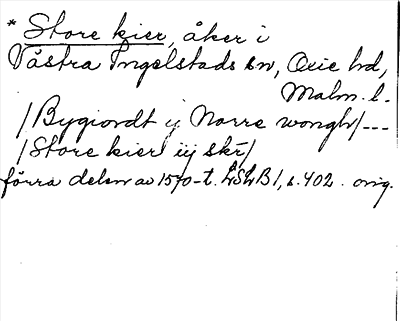 * Store kier, åker i
Västra Ingelstads sn, Oxie hd,
Malm. l.
/Bygiordt ij Norre wongh/---
/Store kier iij skr/
förra delen av 1570-t. LSLB 1, s. 402. orig.